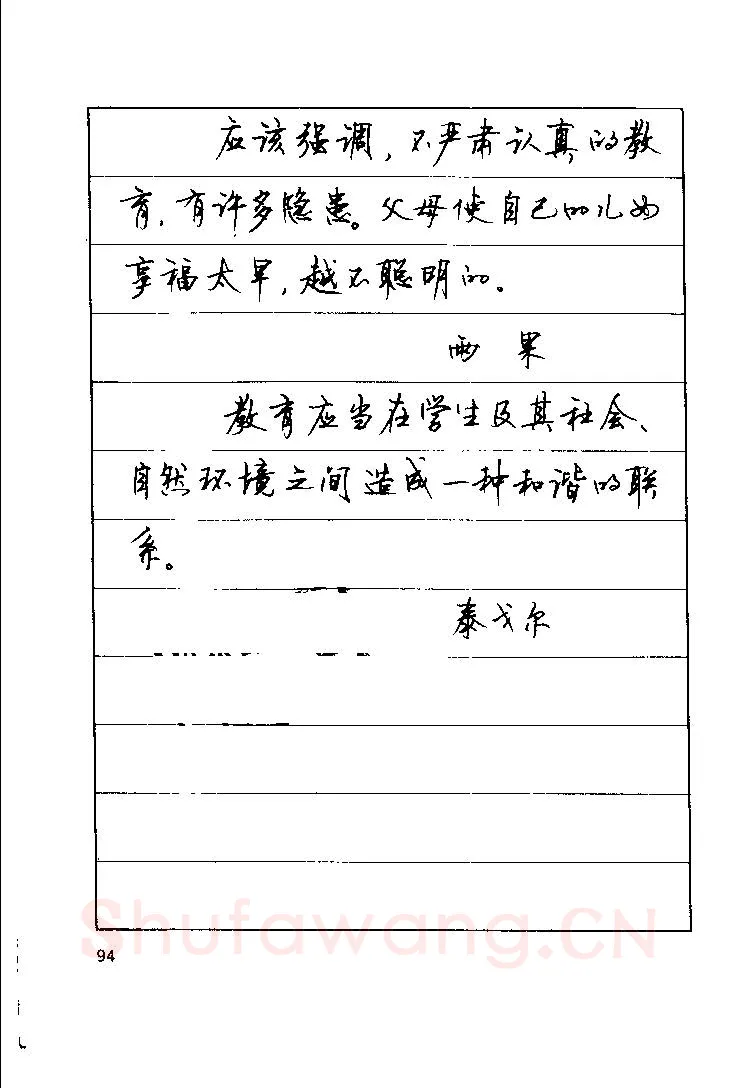 应该强调，不严肃认真的教
育，有许多隐患。父母使自己的儿女
享福太早，越不聪明的。
雨果
教育应当在学生及其社会、
自然环境之间造成一种和谐的联
系。
泰戈尔
Shufawang.CN
94